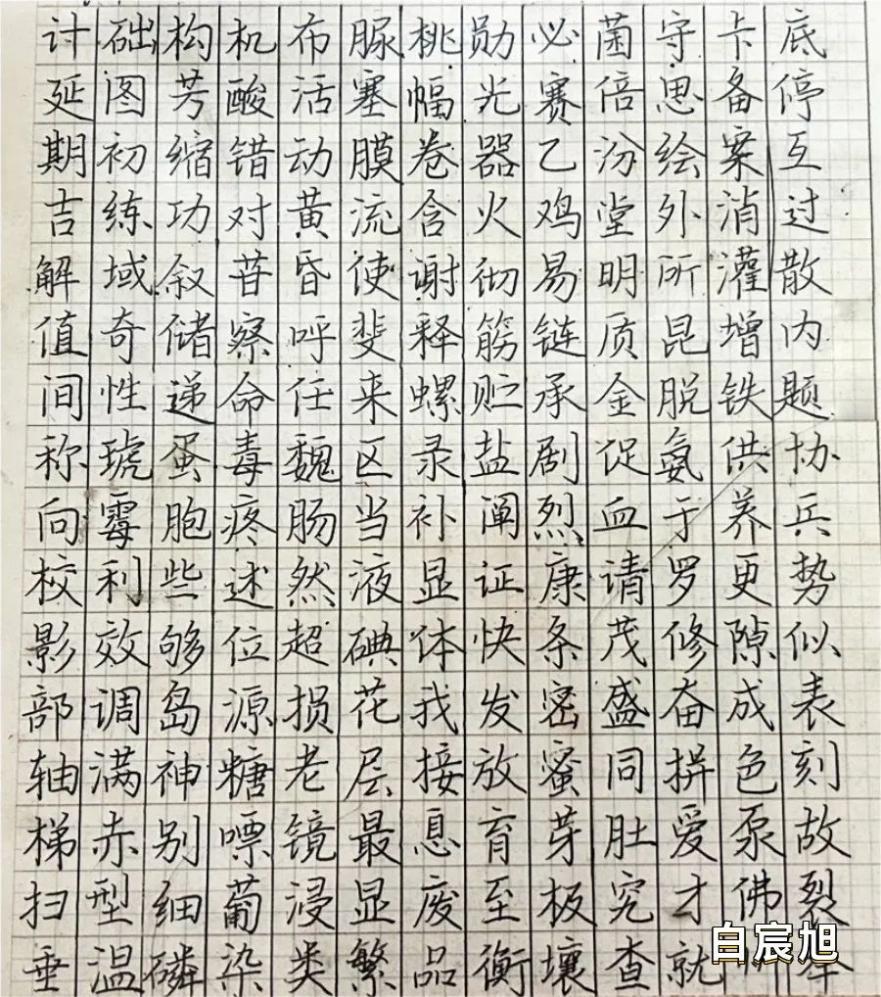 计础构机布脲桃勋必菌守卡底
延图芳酸活塞幅光赛倍思备停
期初缩错动膜卷器乙汾绘案互
吉练功对黄流含火鸡堂外消过
解域叙昔昏使谢彻易明所灌散
值奇储察呼斐释筋链质昆增内
间性递命任来螺贮承金脱铁题
称琥蛋毒魏区录盐剧促氨供协
向霉胞疼肠当补阐烈血于养兵
校利些述然液显证康请罗更势
影效够位超碘体快条茂修隙似
部调岛源损花我发密盛奋成表
轴满神糖老层接放蜜同拼色刻
梯赤别嘌镜最息育芽肚爱泵故
扫型细葡浸显废至板究才佛裂
垂温磷染类繁品衡壤查就
白宸旭